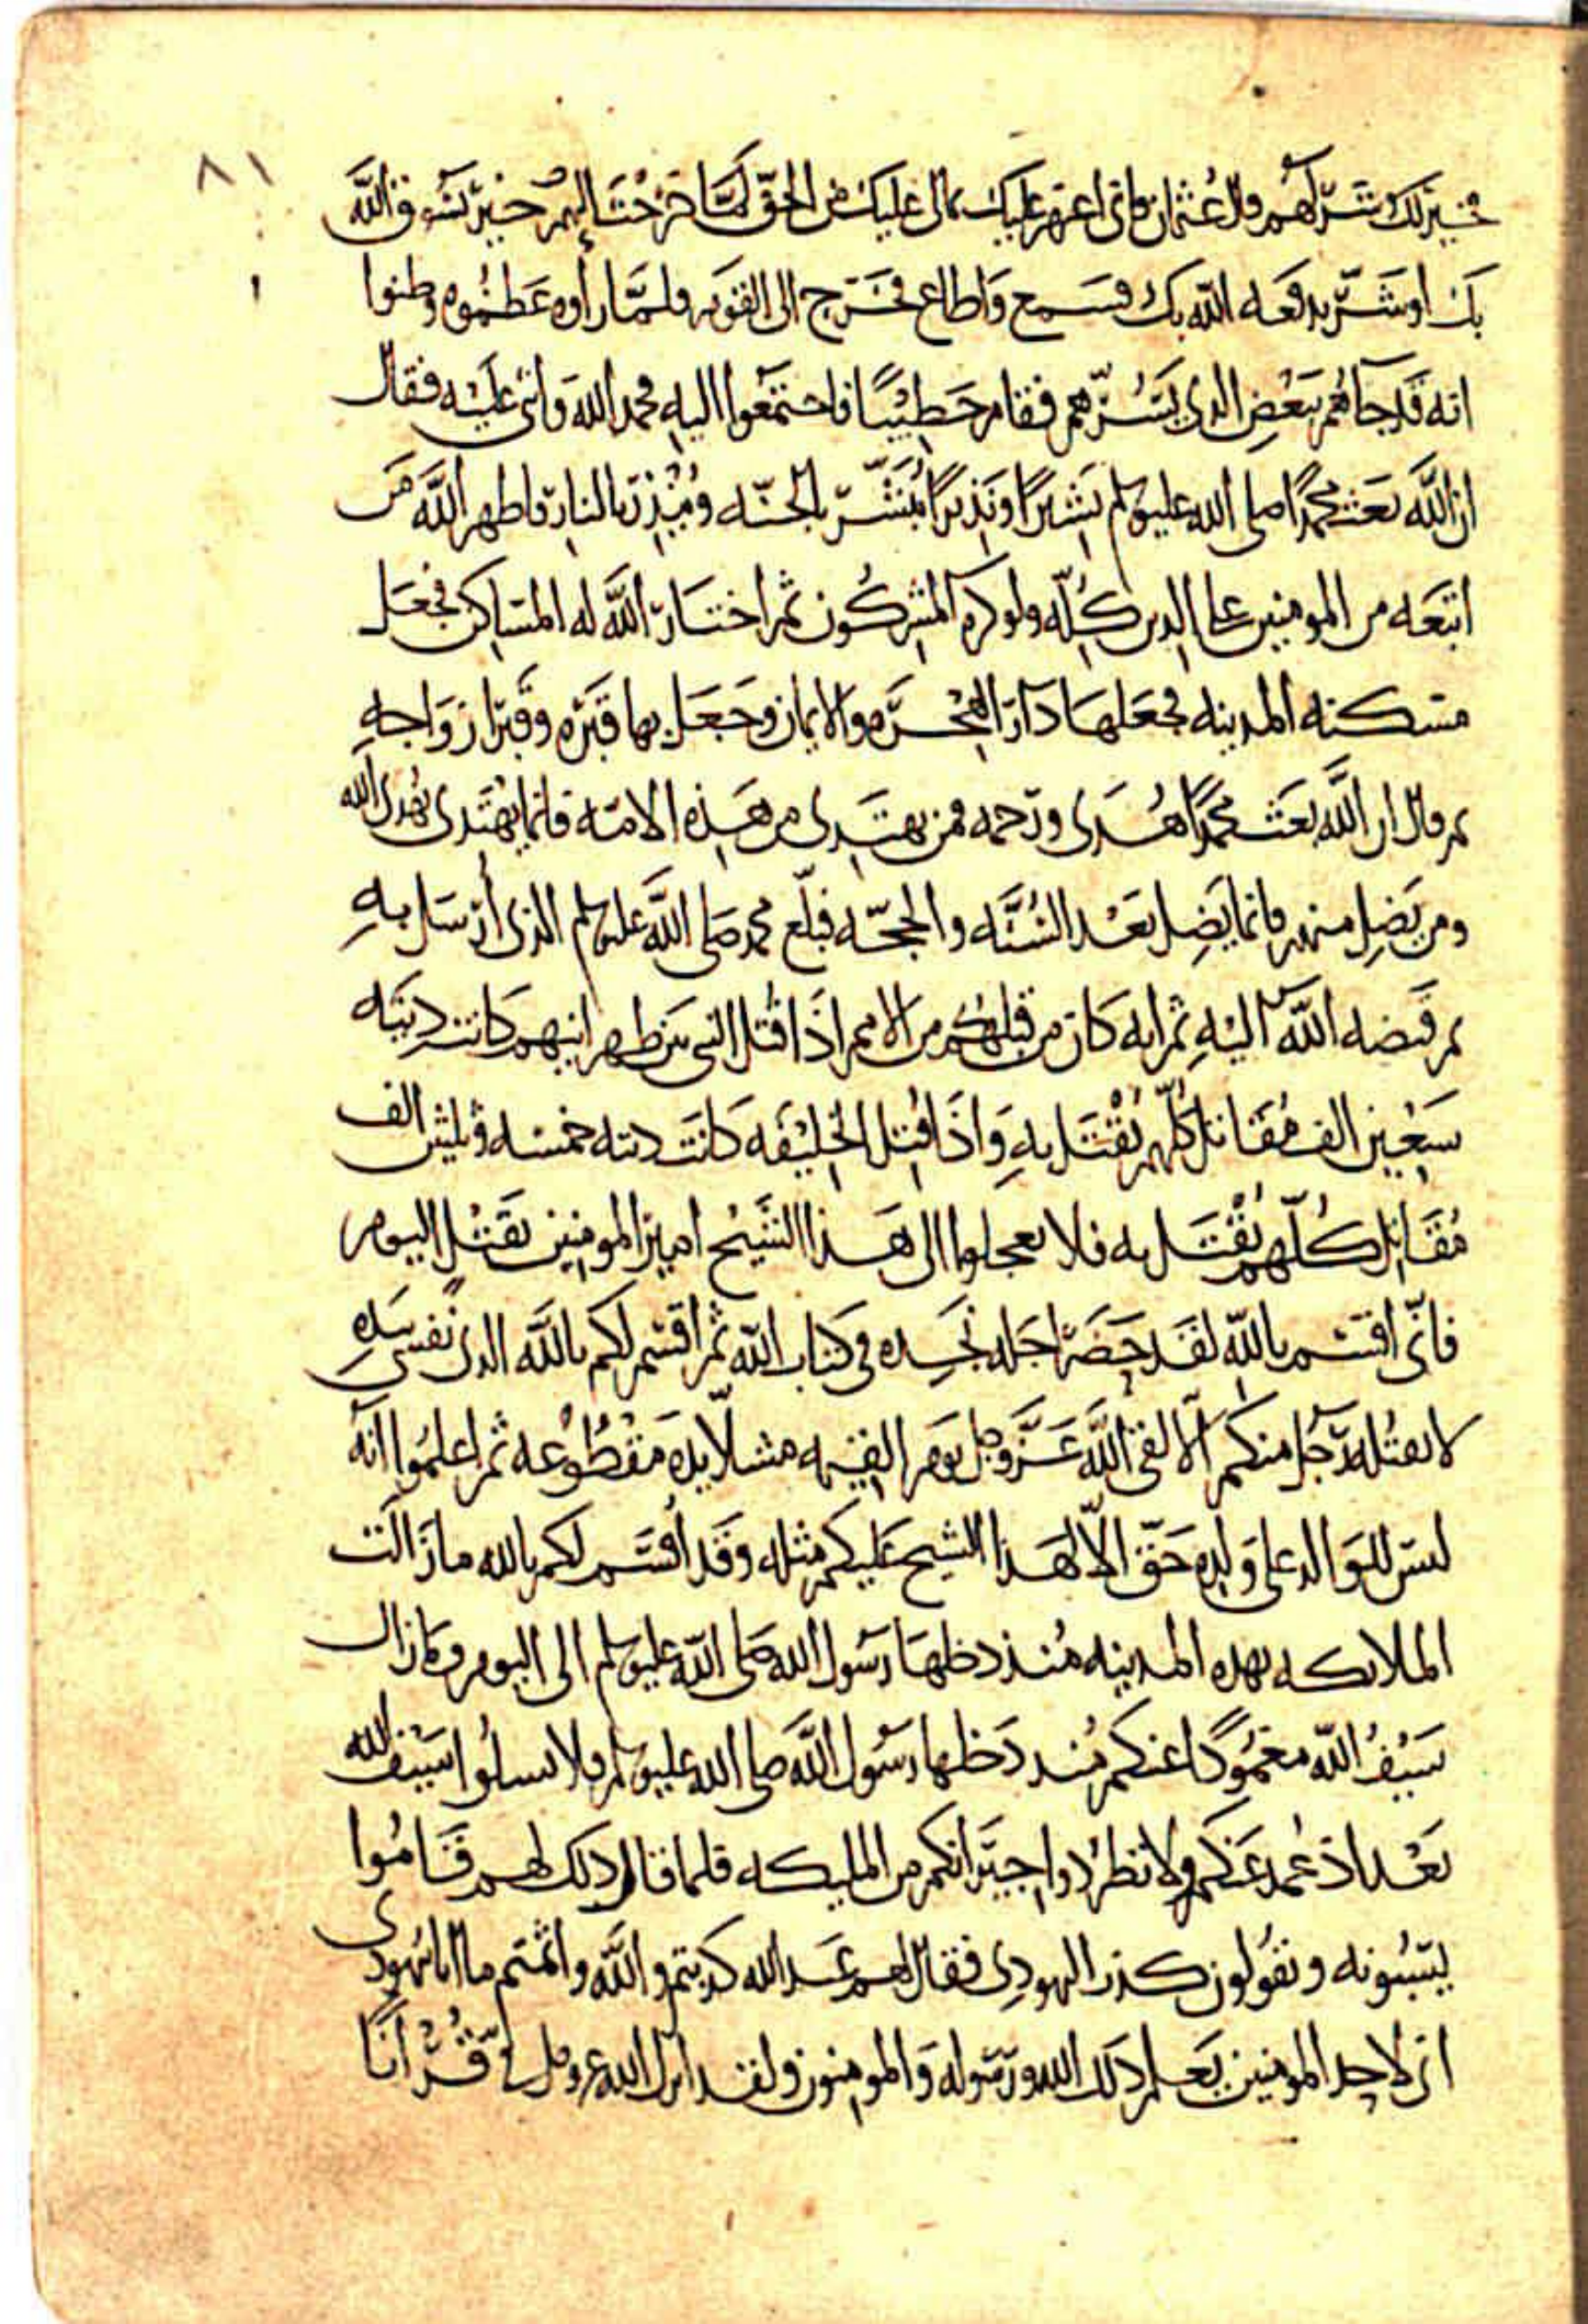 ٨١
خير لك شر لهم قال عثمان فاني اعزم عليك بمالي عليك من الحق لمّا خرجت اليهم خير يسوقه الله
بك او شرّ يدفعه الله بك فسمع واطاع فخرج الى القوم فلمّا راوه عظموه وظنوا
انه قد جاهم ببعض الذي يسُرّهم فقام خطيبًا فاجتمعوا اليه فحمد الله واثنى عليه فقال
ان الله بعث محمدًا صلى الله عليه وسلم بشيرًا ونذيرًا يُبشّر بالجنّه ويُنذر بالنار فاظهر الله من
اتبعه من المومنين على الدين كُلّه ولو كره المشركون ثم اختار الله له المساكن فجعل
مسكنه المدينه فجعلها دار الهجره والايمان وجعل بها قبره وقبر ازواجه
ثم قال ان الله بعث محمدًا هُدى ورحمه فمن يهتدى من هذه الامه فانما يهتدى بهدى الله
ومن يضل منهم فانما يضل بعد السُنّه والحجّه فبلّغ محمد صلى الله عليه وسلم الذى ارسل به
ثم قبضه الله اليه ثم انه كان من قبلكم من الامم اذا قُتل النبى بين ظهرانيهم كانت ديته
سبعين الف مُقاتل كلّهم يُقْتل به واذا قُتل الخليفه كانت ديته خمسه وثلثين الف
مُقاتل كُلّهم يُقْتل به فلا تعجلوا الى هذا الشيخ امير المومنين بقتل اليوم
فانّى اقسم بالله لقد حضر اجله نجده في كتاب الله ثم اقسم لكم بالله الذى نفسي بيده
لا يقتله رجل منكم الا لقى الله عزّ وجل يوم القيمه مشلّا يده مقطُوعه ثم اعلمُوا انّه
ليس للوالد على ولده حقّ الّا لهذا الشيخ عليكم مثله وقد اقسم لكم بالله ما زالت
الملائكه بهذه المدينه مُنذ دخلها رسول الله صلى الله عليه وسلم الى اليوم وما زال
سيفُ الله مغمُودًا عنكم مُنذ دخلها رسُول الله صلى الله عليه وسلم فلا تسلُوا سيف الله
بعد اذ غُمد عنكم ولا تطرُدوا جيرانكم من المليكه فلما قال ذلك لهم قامُوا
يسبُونه ويقُولون كذب اليهودي فقال لهم عبد الله كذبتم والله واثمتم ما انا بيهودى
انى لاحد المومنين يعلم ذلك الله ورسوله والمومنون ولقد انزل الله عز وجل فيّ قُرْآنًا